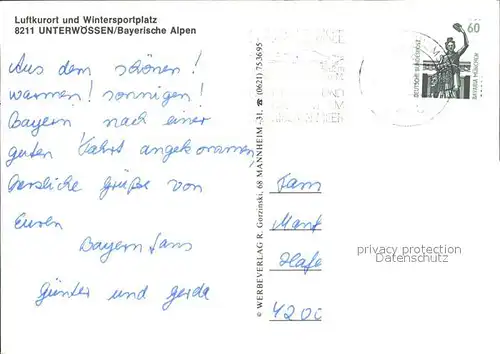 Luftkurort und Wintersportplatz
8211 UNTERWÖSSEN/Bayerische Alpen
Aus dem schönen!
warmen! sonnigen!
Bayern nach einer
guten Fahrt angekommen,
herzliche Grüße von
Euren
Bayern Fans
Günter und Gerda
© WERBEVERLAG R. Gorzinski, 68 MANNHEIM-31, ☎ (0621) 753695
60
DEUTSCHE BUNDESPOST
BAVARIA MÜNCHEN
Fam
Hafe
4200
privacy protection
Datenschutz